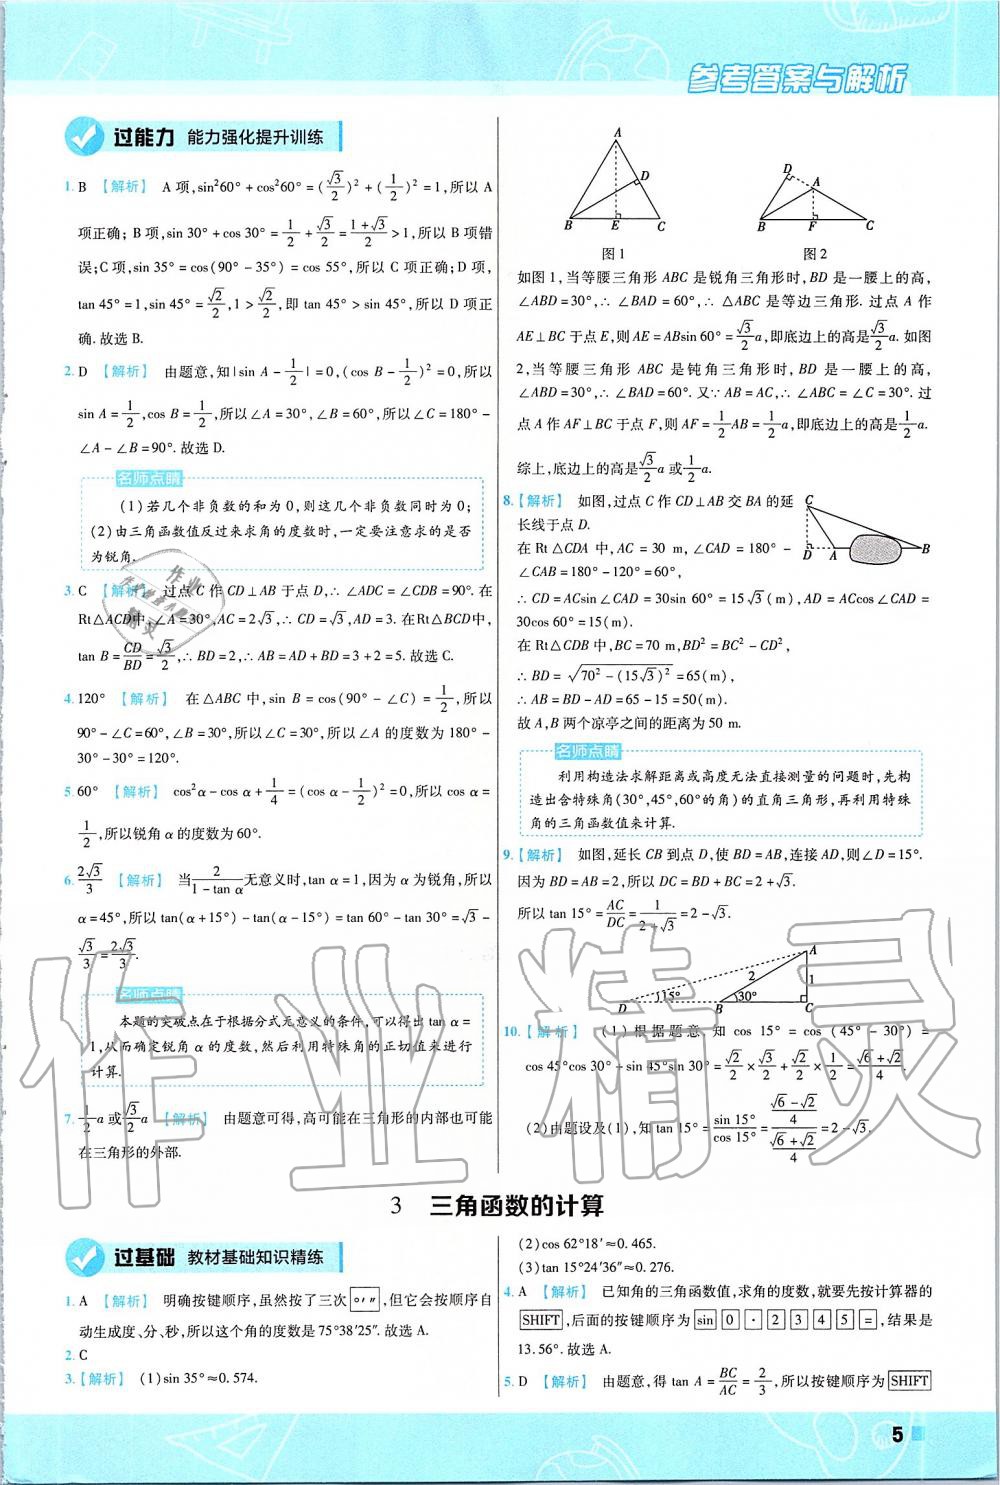 参考答案与解析
过能力 能力强化提升训练
1. B 【解析】 A 项,sin²60°+cos²60°=(√3/2)²+(1/2)²=1,所以 A
项正确; B 项,sin 30°+cos 30°=1/2+√3/2=(1+√3)/2>1,所以 B 项错
误;C 项,sin 35°=cos(90°-35°)=cos 55°,所以 C 项正确;D 项,
tan 45°=1,sin 45°=√2/2,1>√2/2,即 tan 45°>sin 45°,所以 D 项正
确.故选 B.
2. D 【解析】 由题意,知|sin A-1/2|=0,(cos B-1/2)²=0,所以
sin A=1/2,cos B=1/2,所以∠A=30°,∠B=60°,所以∠C=180°-
∠A-∠B=90°.故选 D.
名师点睛
(1)若几个非负数的和为 0,则这几个非负数同时为 0;
(2)由三角函数值反过来求角的度数时,一定要注意求的是否
为锐角.
3. C 【解析】 过点 C 作 CD⊥AB 于点 D,∴∠ADC=∠CDB=90°.在
Rt△ACD中,∠A=30°,AC=2√3,∴CD=√3,AD=3.在Rt△BCD中,
tan B=CD/BD=√3/2,∴BD=2,∴AB=AD+BD=3+2=5.故选 C.
4. 120° 【解析】 在△ABC 中,sin B=cos(90°-∠C)=1/2,所以
90°-∠C=60°,∠B=30°,所以∠C=30°,所以∠A 的度数为 180°-
30°-30°=120°.
5. 60° 【解析】 cos²α-cos α+1/4=(cos α-1/2)²=0,所以 cos α=
1/2,所以锐角 α 的度数为 60°.
6. 2√3/3 【解析】 当2/(1-tan α)无意义时,tan α=1,因为 α 为锐角,所以
α=45°,所以 tan(α+15°)-tan(α-15°)=tan 60°-tan 30°=√3-
√3/3=2√3/3.
名师点睛
本题的突破点在于根据分式无意义的条件,可以得出 tan α=
1,从而确定锐角 α 的度数,然后利用特殊角的正切值来进行
计算.
7. 1/2a 或√3/2a 【解析】 由题意可得,高可能在三角形的内部也可能
在三角形的外部.
A
D
B E C
图 1
D
A
B F C
图 2
如图 1,当等腰三角形 ABC 是锐角三角形时,BD 是一腰上的高,
∠ABD=30°,∴∠BAD=60°,∴△ABC 是等边三角形. 过点 A 作
AE⊥BC 于点 E,则 AE=ABsin 60°=√3/2a,即底边上的高是√3/2a.如图
2,当等腰三角形 ABC 是钝角三角形时,BD 是一腰上的高,
∠ABD=30°,∴∠BAD=60°.又∵AB=AC,∴∠ABC=∠C=30°.过
点 A 作 AF⊥BC 于点 F,则 AF=1/2AB=1/2a,即底边上的高是1/2a.
综上,底边上的高是√3/2a 或1/2a.
8. 【解析】 如图,过点 C 作 CD⊥AB 交 BA 的延
长线于点 D.
在 Rt△CDA 中,AC=30 m,∠CAD=180°-
∠CAB=180°-120°=60°,
C
D A B
∴CD=ACsin∠CAD=30sin 60°=15√3(m),AD=ACcos∠CAD=
30cos 60°=15(m).
在 Rt△CDB 中,BC=70 m,BD²=BC²-CD²,
∴BD=√(70²-(15√3)²)=65(m),
∴AB=BD-AD=65-15=50(m).
故 A,B 两个凉亭之间的距离为 50 m.
名师点睛
利用构造法求解距离或高度无法直接测量的问题时,先构
造出含特殊角(30°,45°,60°的角)的直角三角形,再利用特殊
角的三角函数值来计算.
9. 【解析】 如图,延长 CB 到点 D,使 BD=AB,连接 AD,则∠D=15°.
因为 BD=AB=2,所以 DC=BD+BC=2+√3.
所以 tan 15°=AC/DC=1/(2+√3)=2-√3.
A
2
1
15° 30°
D B C
10. 【解析】 (1)根据题意,知 cos 15°=cos (45°-30°)=
cos 45°cos 30°+sin 45°sin 30°=√2/2×√3/2+√2/2×1/2=(√6+√2)/4.
(2)由题设及(1),知tan 15°=sin 15°/cos 15°=((√6-√2)/4)/((√6+√2)/4)=2-√3.
3 三角函数的计算
过基础 教材基础知识精练
1. A 【解析】 明确按键顺序,虽然按了三次[°′″],但它会按顺序自
动生成度、分、秒,所以这个角的度数是 75°38′25″.故选 A.
2. C
3. 【解析】 (1)sin 35°≈0.574.
(2)cos 62°18′≈0.465.
(3)tan 15°24′36″≈0.276.
4. A 【解析】 已知角的三角函数值,求角的度数,就要先按计算器的
[SHIFT],后面的按键顺序为[sin][0][·][2][3][4][5][=],结果是
13.56°.故选 A.
5. D 【解析】 由题意,得 tan A=BC/AC=2/3,所以按键顺序为[SHIFT]
5
作业精灵